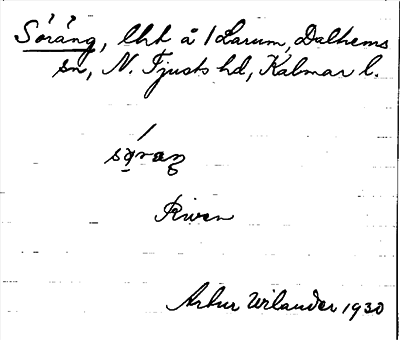 Söräng, lht å 1 Larum, Dalhems
sn, N. Tjusts hd, Kalmar l.
Riven
Artur Wilander 1930